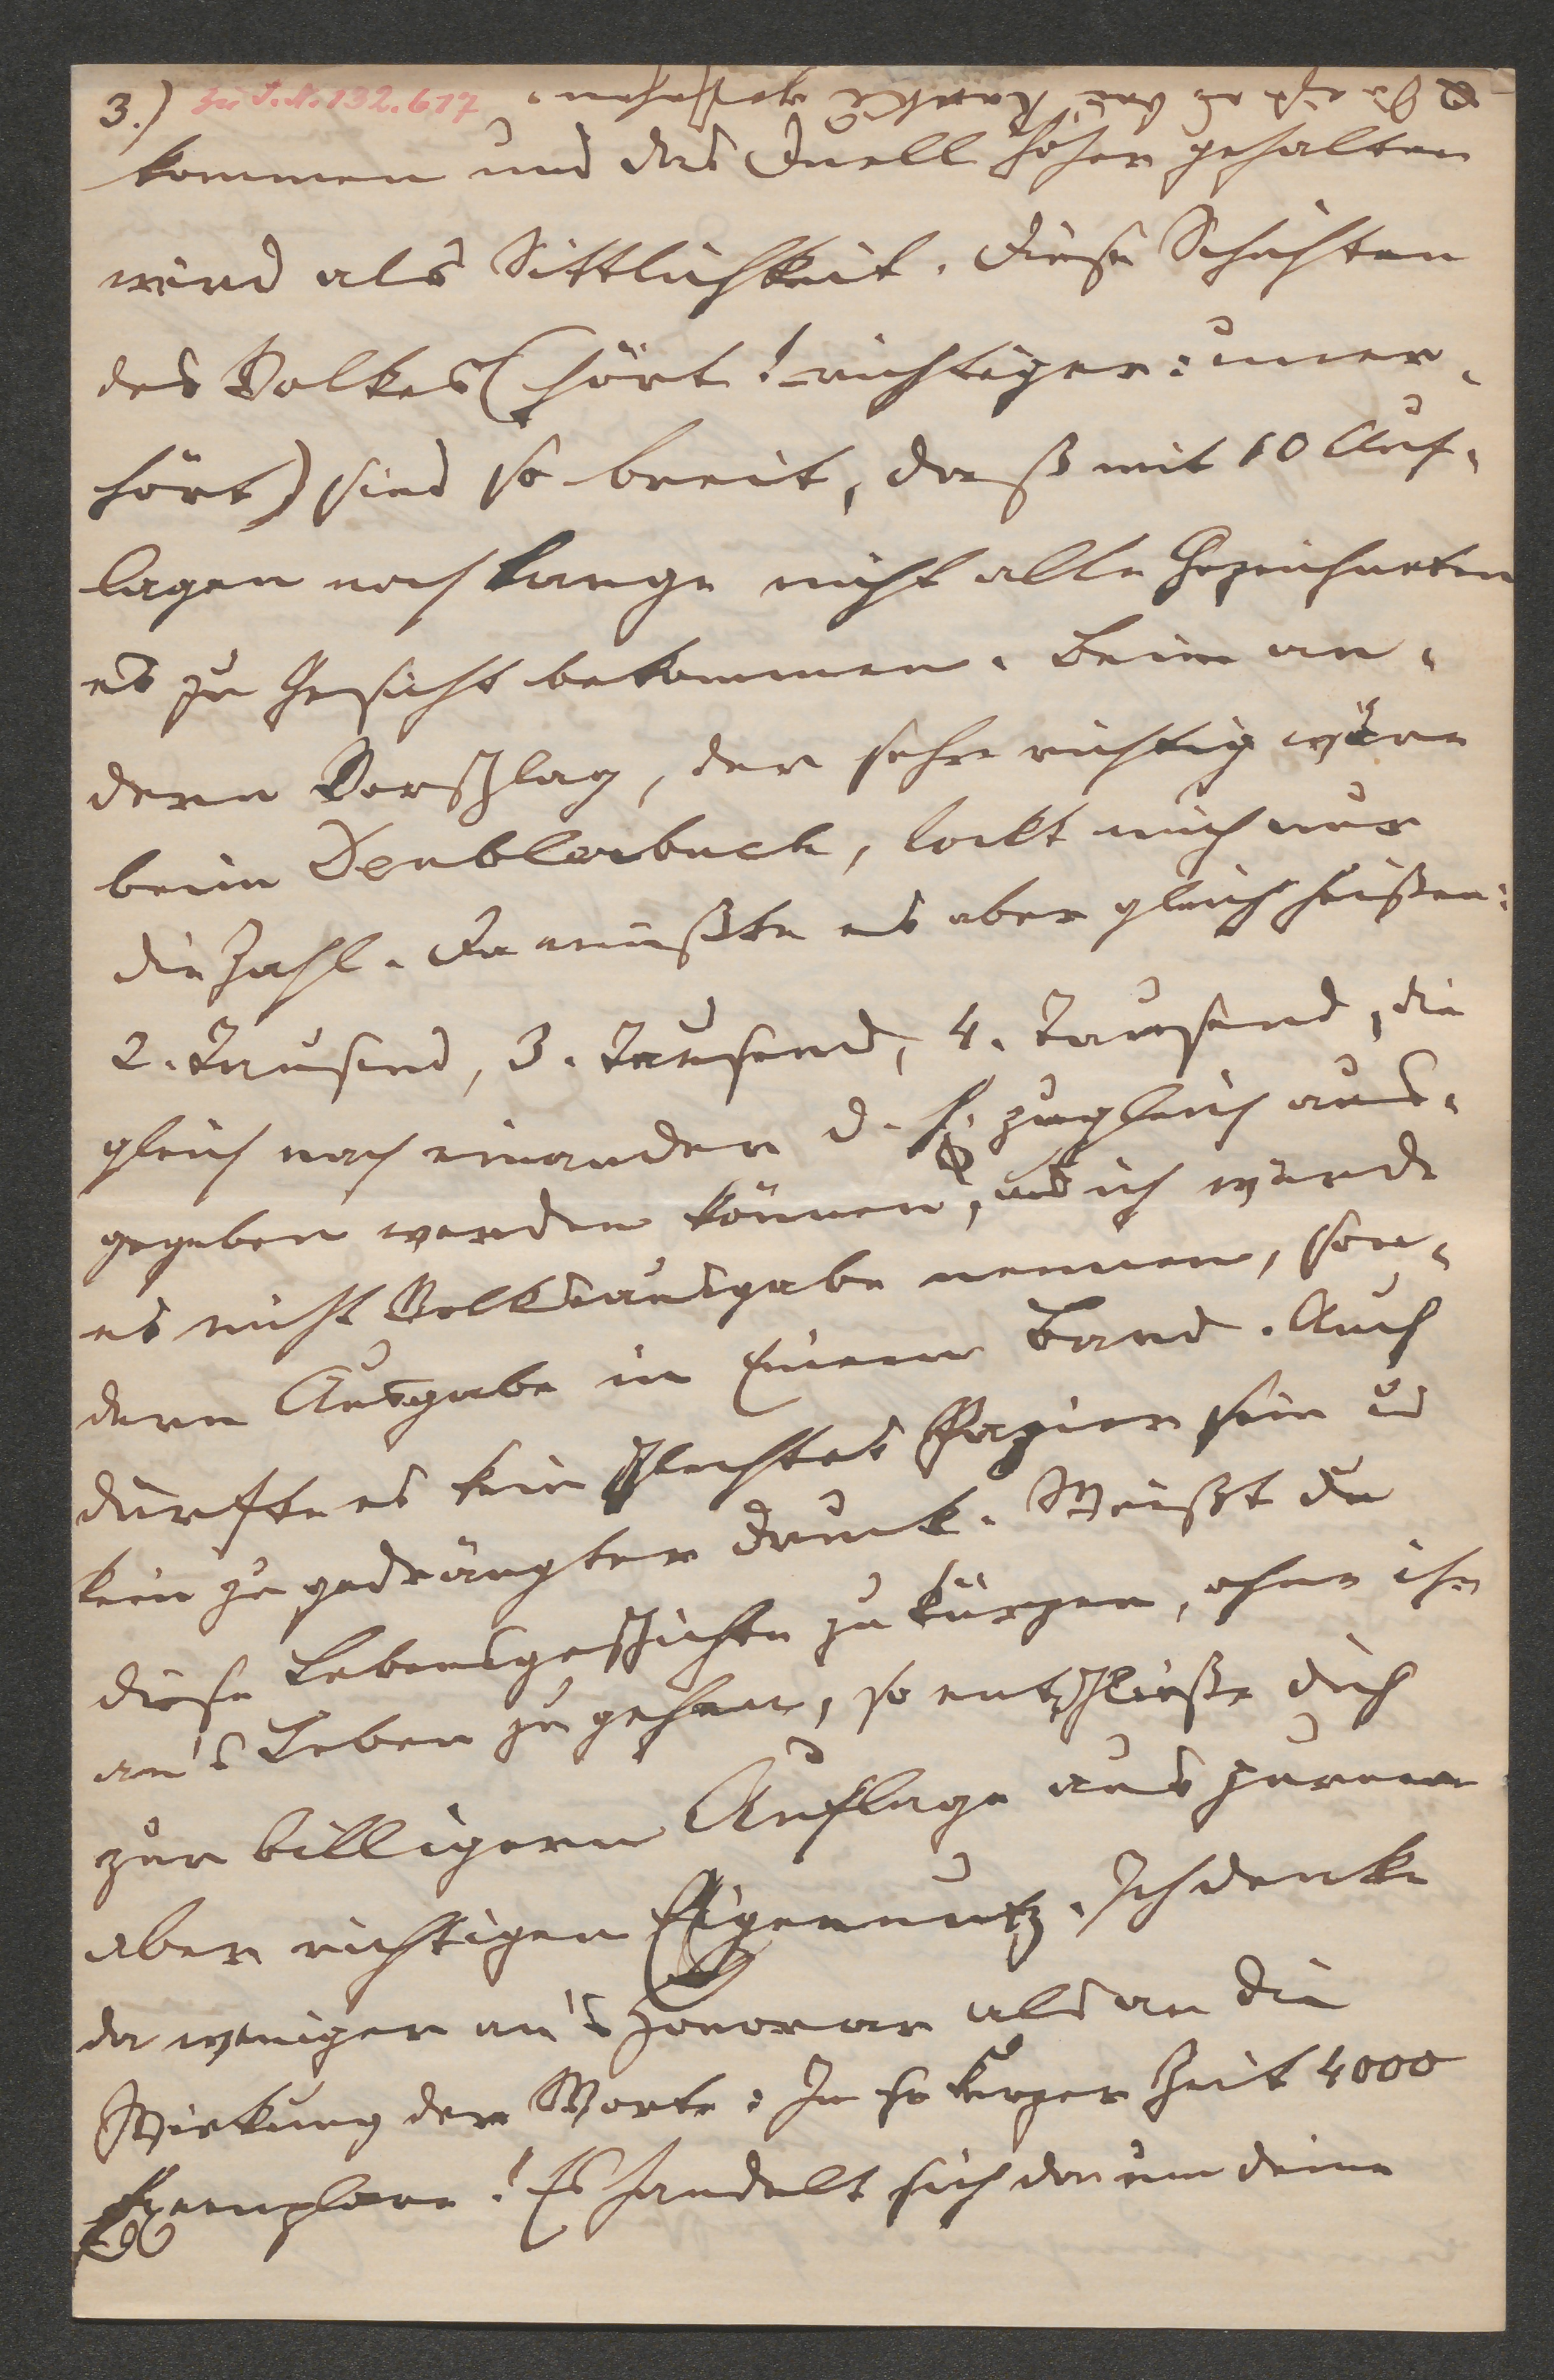 3.) Zu I.N. 132.617
kommen und das Duell höher gehalten
wird als Sittlichkeit. Diese Schichten
des Volkes (hört! – richtiger: uner-
hört) sind so breit, daß mit 10 Auf-
lagen noch lange nicht alle Gezeichneten
es zu Gesicht bekommen. Beim an-
dern Vorschlag, der sehr richtig wäre
beim Deublerbuch, lockt mich nur
die Zahl. Da müßte es aber gleich heißen:
2. Tausend, 3. Tausend, 4. Tausend, die
gleich nach einander d. h. zugleich aus-
gegeben werden können, und ich würde
es nicht Volksausgabe nennen, son-
dern Ausgabe in Einem Band. Auch
dürfte es kein schlechtes Papier sein ud
kein zu gedrängter Druck. Weißt Du
diese Lebensgeschichte zu kürzen, ohne ihr
an's Leben zu gehen, so entschließe dich
zur billigern Auflage aus purem
aber richtigen Eigennutz. Ich denke
da weniger an's Honorar als an die
Wirkung der Worte: In so kurzer Zeit 4000
Exemplare! Es handelt sich da um deine
Da ist es bei Ranke geschehen.